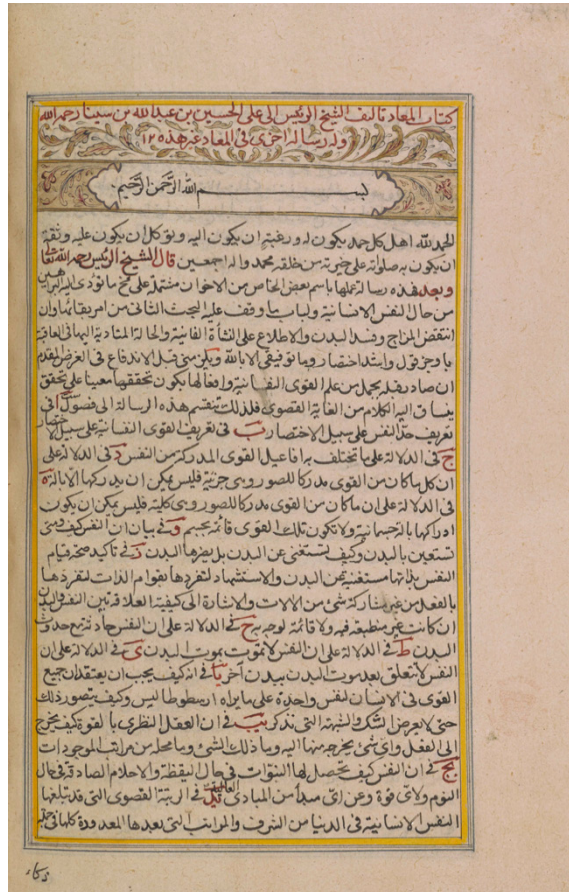 كتاب المعاد تاليف الشيخ الرئيس ابى على الحسين بن عبد الله بن سينا رحمه الله
وله رسالة اخرى فى المعاد غير هذه ١٢
بسم الله الرحمن الرحيم
الحمد لله اهل كل حمد يكون له ورغبة ان يكون اليه وتوكل ان يكون عليه وثقة
ان يكون به صلواته على خيرته من خلقه محمد واله اجمعين قال الشيخ الرئيس رحمه الله تعالى
وبعد فهذه رسالة عملها باسم بعض الخاص من الاخوان مشتملة على مخ ما تؤدى اليه البراهين
من حال النفس الانسانية ولباب ما وقف عليه البحث الثانى من امر بقائها وان
انتقض المزاج وفسد البدن والاطلاع على النشأة الثانية والحالة المتادية اليها فى العاقبة
باوجز قول واشد اختصار وما توفيقى الا بالله ويلزمنى قبل الاندفاع فى الغرض المقدم
ان صادر فيه بجمل من علم القوى النفسانية وافعالها يكون تحققها معينا على تحقق
ينساق اليه الكلام من الغاية القصوى فلذلك تنقسم هذه الرسالة الى فصول ا فى
تعريف حد النفس على سبيل الاختصار ب فى تعريف القوى النفسانية على سبيل الاختصار
ج فى الدلالة على ما تختلف به افاعيل القوى المدركة من النفس د فى الدلالة على
ان كل ما كان من القوى مدركا للصور وهى جزئية فليس يمكن ان يدركها الا بالة ه
فى الدلالة على ان ما كان من القوى مدركا للصور وهى كلية فليس يمكن ان يكون
ادراكها بالة جسمانية ولا تكون تلك القوى قائمة بجسم و فى بيان ان النفس كيف ومتى
تستعين بالبدن وكيف تستغنى عن البدن بل يضرها البدن ز فى تاكيد صحة قيام
النفس بذاتها مستغنية عن البدن والاستشهاد لتفردها بقوام الذات لتفردها
بالفعل من غير مشاركة شئ من الالات والاشارة الى كيفية العلاقة بين النفس والبدن
ان كانت غير منطبعة فيه ولا قائمة لوجه به ح فى الدلالة على ان النفس حادثة مع حدوث
البدن ط فى الدلالة على ان النفس لا تموت بموت البدن ى فى الدلالة على ان
النفس لا تتعلق بعد موت البدن ببدن آخر يا فى انه كيف يجب ان يعتقد ان جميع
القوى فى الانسان لنفس واحدة على ما يراه ارسطوطاليس وكيف يتصور ذلك
حتى لا يعرض الشك والشبهة التى تذكر يب فى ان العقل النظرى بالقوة كيف يخرج
الى الفعل واى شئ يخرجه منها اليه وما ذلك الشئ وما محله من مراتب الموجودات
يج فى ان النفس كيف تحصل لها النبوات فى حال اليقظة والاحلام الصادقة فى حال
النوم ولاى قوة وعن اى مبدأ من المبادى العالية يد فى الرتبة القصوى التى قد تبلغها
النفس الانسانية فى الدنيا من الشرف والمراتب التى بعدها المعدودة كلها فى جملة